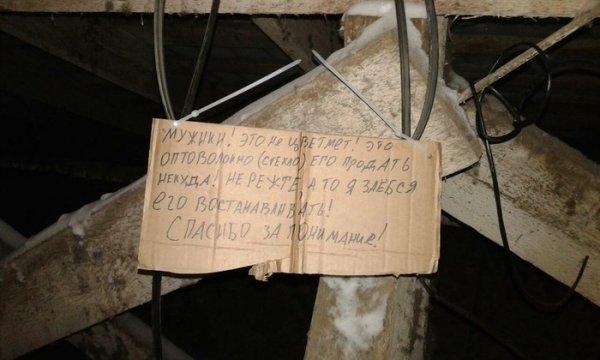 МУЖИКИ! ЭТО НЕ ЦВЕТМЕТ! ЭТО
ОПТОВОЛОКНО (СТЕКЛО) ЕГО ПРОДАТЬ
НЕКУДА! НЕ РЕЖТЕ А ТО Я ЗАЕБСЯ
ЕГО ВОСТАНАВЛИВАТЬ!
СПАСИБО ЗА ПОНИМАНИЕ!